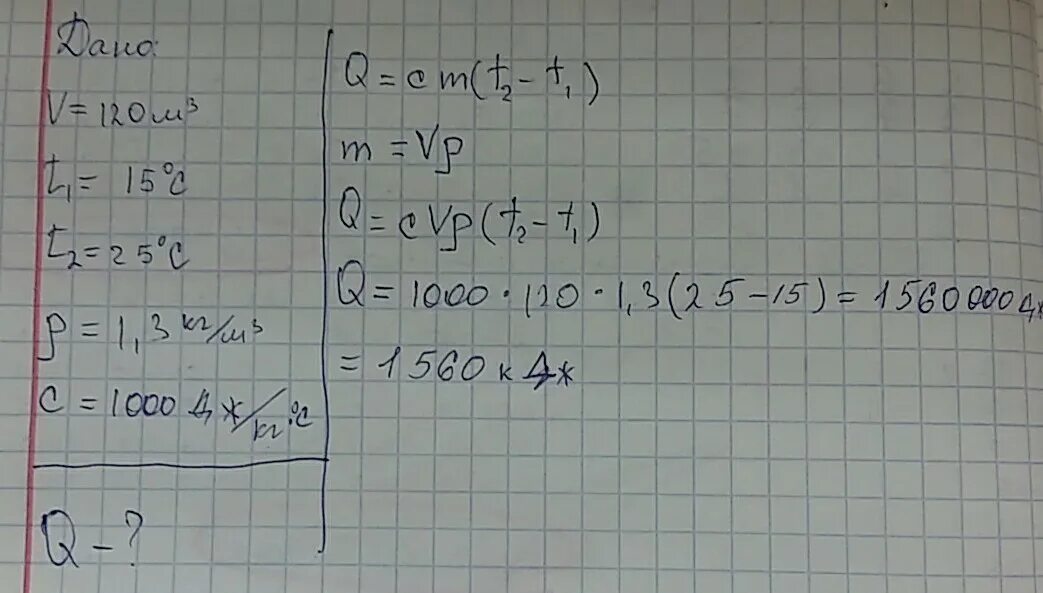 Дано:
V = 120 м³
t₁ = 15°C
t₂ = 25°C
ρ = 1,3 кг/м³
c = 1000 Дж/кг·°C
Q - ?
Q = c m(t₂ - t₁)
m = Vρ
Q = c Vρ (t₂ - t₁)
Q = 1000 · 120 · 1,3 (25 - 15) = 1560000 Дж
= 1560 к Дж